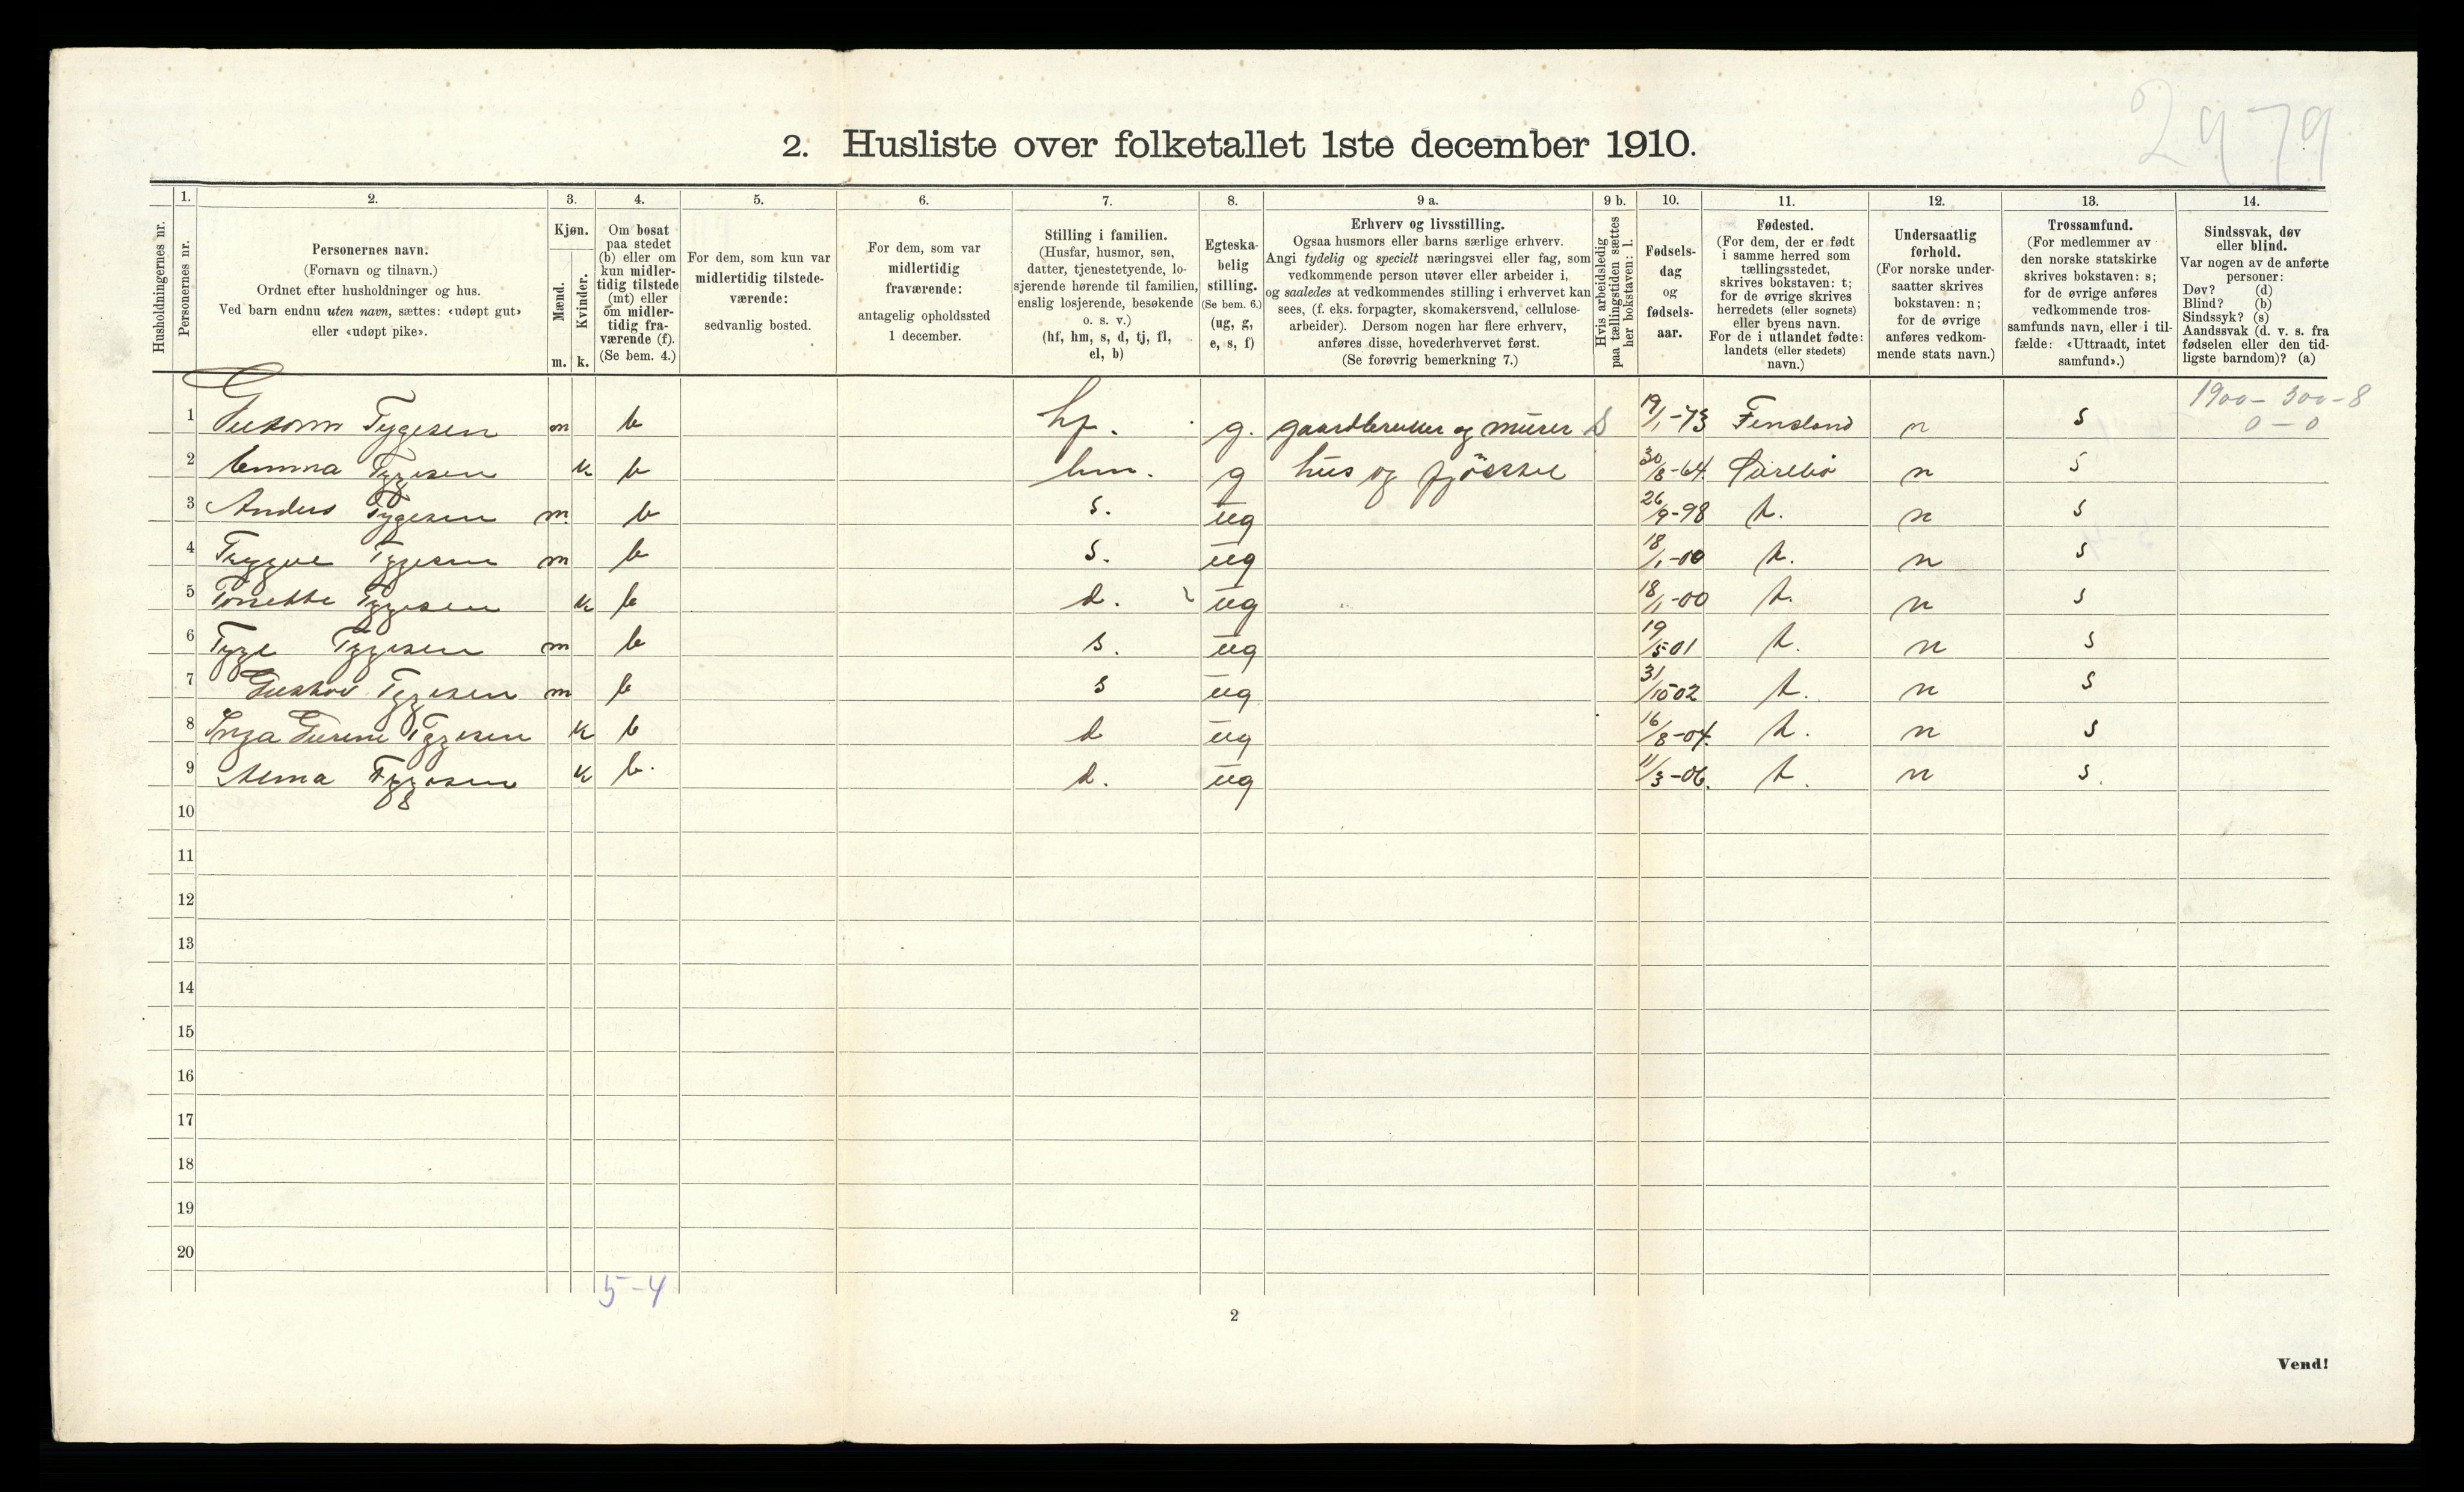 2979
2. Husliste over folketallet 1ste december 1910.
Husholdningernes nr.
1.
Personernes nr.
2.
Personernes navn.
(Fornavn og tilnavn.)
Ordnet efter husholdninger og hus.
Ved barn endnu uten navn, sættes: «udøpt gut»
eller «udøpt pike».
3.
Kjøn.
Mænd.
Kvinder.
m. k.
4.
Om bosat
paa stedet
(b) eller om
kun midler-
tidig tilstede
(mt) eller
om midler-
tidig fra-
værende (f).
(Se bem. 4.)
5.
For dem, som kun var
midlertidig tilstede-
værende:
sedvanlig bosted.
6.
For dem, som var
midlertidig
fraværende:
antagelig opholdssted
1 december.
7.
Stilling i familien.
(Husfar, husmor, søn,
datter, tjenestetyende, lo-
sjerende hørende til familien,
enslig losjerende, besøkende
o. s. v.)
(hf, hm, s, d, tj, fl,
el, b)
8.
Egteska-
belig
stilling.
(Se bem. 6.)
(ug, g,
e, s, f)
9 a.
Erhverv og livsstilling.
Ogsaa husmors eller barns særlige erhverv.
Angi tydelig og specielt næringsvei eller fag, som
vedkommende person utøver eller arbeider i,
og saaledes at vedkommendes stilling i erhvervet kan
sees, (f. eks. forpagter, skomakersvend, cellulose-
arbeider). Dersom nogen har flere erhverv,
anføres disse, hovederhvervet først.
(Se forøvrig bemerkning 7.)
9 b.
Hvis arbeidsledig
paa tællingstiden sættes
her bokstaven: l.
10.
Fødsels-
dag
og
fødsels-
aar.
11.
Fødested.
(For dem, der er født
i samme herred som
tællingsstedet,
skrives bokstaven: t;
for de øvrige skrives
herredets (eller sognets)
eller byens navn.
For de i utlandet fødte:
landets (eller stedets)
navn.)
12.
Undersaatlig
forhold.
(For norske under-
saatter skrives
bokstaven: n;
for de øvrige
anføres vedkom-
mende stats navn.)
13.
Trossamfund.
(For medlemmer av
den norske statskirke
skrives bokstaven: s;
for de øvrige anføres
vedkommende tros-
samfunds navn, eller i til-
fælde: «Uttraadt, intet
samfund».)
14.
Sindssvak, døv
eller blind.
Var nogen av de anførte
personer:
Døv? (d)
Blind? (b)
Sindssyk? (s)
Aandssvak (d. v. s. fra
fødselen eller den tid-
ligste barndom)? (a)
1900-300-8
0-0
1 Guttorm Tygesen m b hf. g. gaardbruker og murer S 19/1-73 Finsland n s
2 Emma Tygesen k b hm. g hus og fjösstel 30/8-64 n s
3 Anders Tygesen m b s. ug 26/9-98 t. n s
4 Trygve Tygesen m b s. ug 18/1-00 t. n s
5 Tønette Tygesen k b d. ug 18/1-00 t. n s
6 Tyge Tygesen m b s. ug 19/5 01 t. n s
7 Gustav Tygesen m b s ug 31/10 02 t. n s
8 Inga Gurine Tygesen k b d ug 16/8-04. t. n s
9 Alma Tygesen k b. d. ug 11/3-06. t. n s.
10
11
12
13
14
15
16
17
18
19
20
5-4
2
Vend!